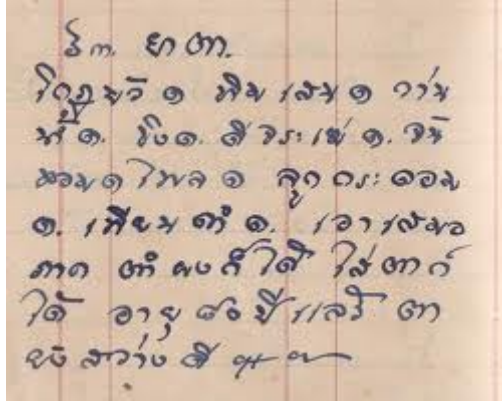 ยา ตา.
๑ พิมเสน ๑ ว่าน
น้ำ ๑. ขิง ๑. ดีจระเข้ ๑. จัน
หอม ๑ ไพล ๑ ลูกกระดอม
๑. เทียนดำ ๑. เอาเสมอ
ภาค ตำผงก็ได้ ใส่ตาก็
ได้ อายุ ๘๐ ปีแล้ว ตา
ยังสว่างดี